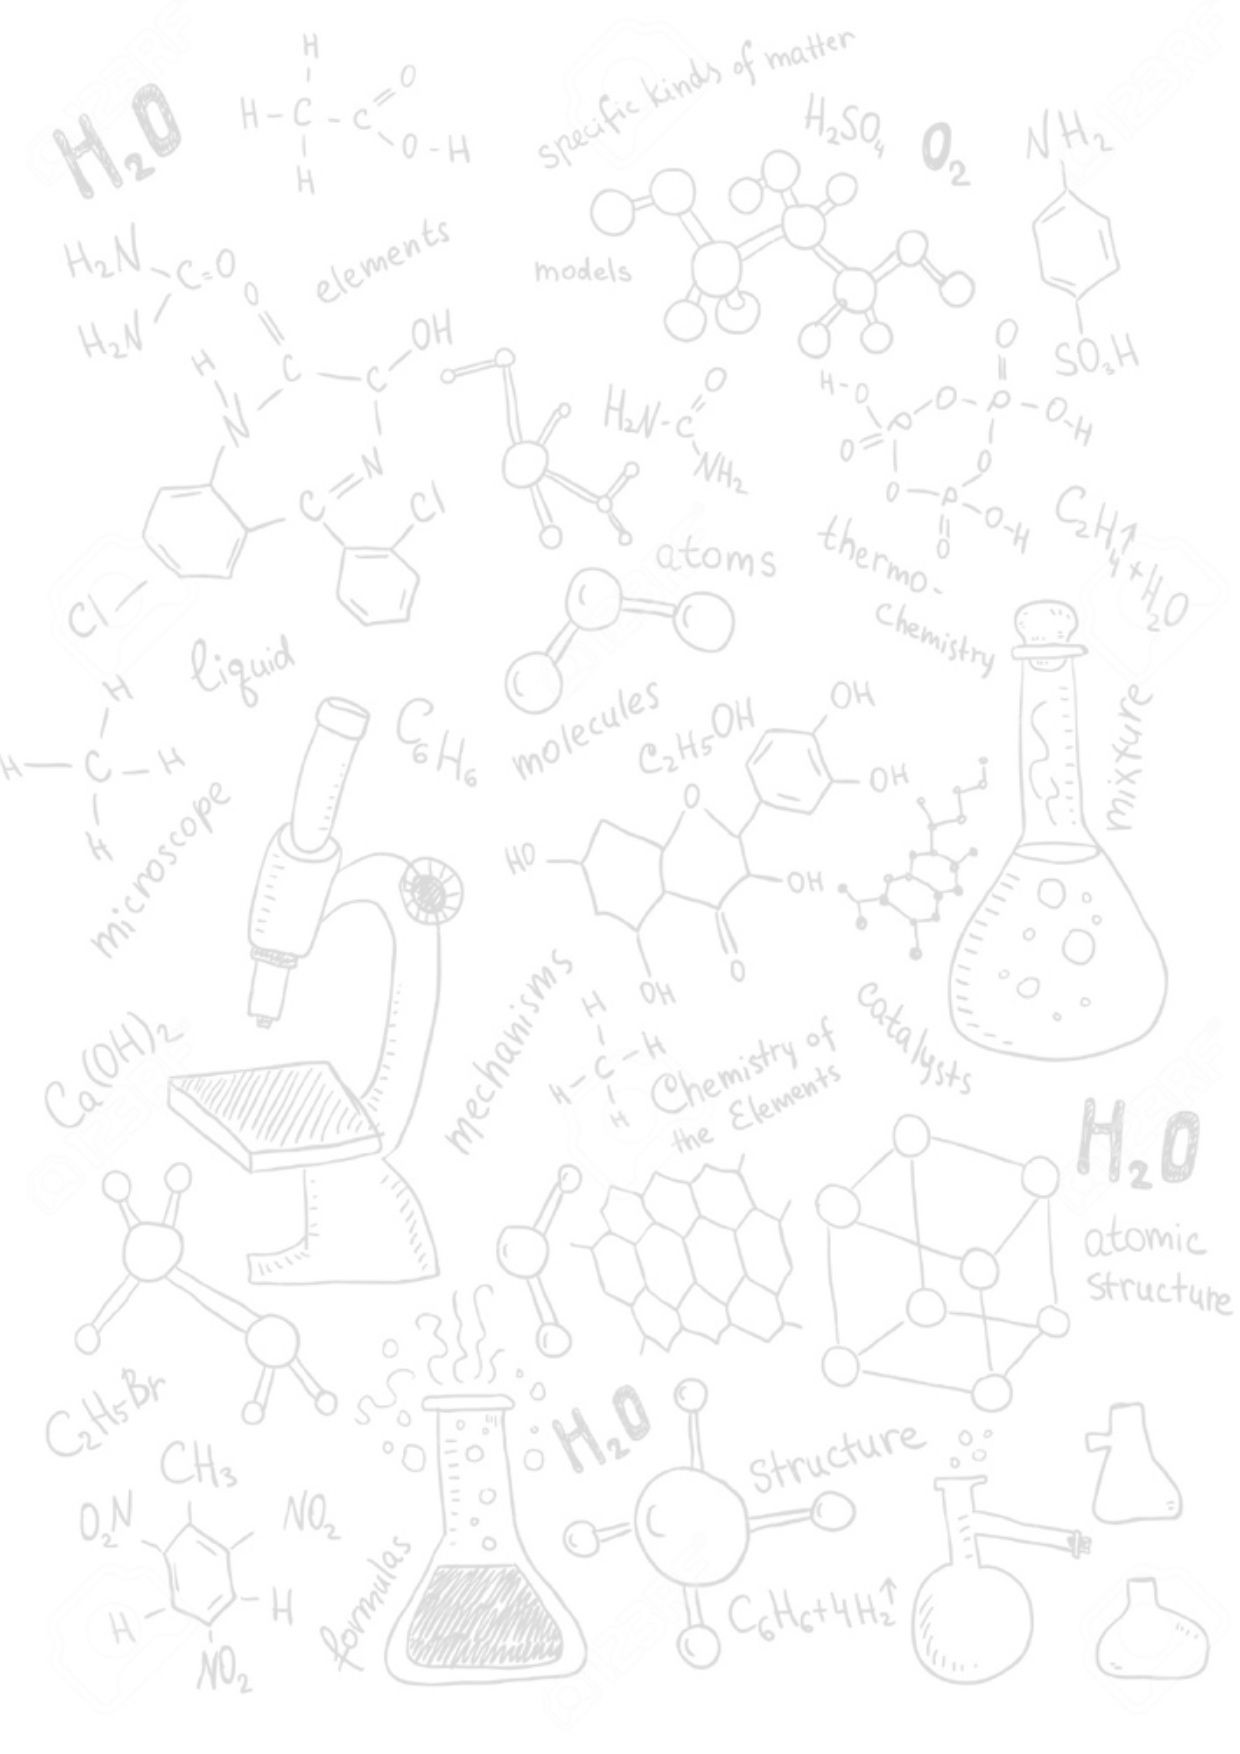 H₂O
H
H-C-C
O
O-H
H
specific kinds of matter
H₂SO₄
O₂
NH₂
SO₃H
H₂N
C=O
H₂N
elements
models
O
H
C
C
OH
N
N
C
Cl
Cl
H₂N-C
O
NH₂
H-O
O
P
O-P
O-H
O
O
O-P
O-H
O
C₂H₄↑+H₂O
atoms
thermo-
chemistry
liquid
H
H-C-H
H
C₆H₆
molecules
C₂H₅OH
OH
OH
O
HO
OH
O
OH
mixture
microscope
mechanisms
catalysts
Ca(OH)₂
H
H-C-H
H
Chemistry of
the Elements
H₂O
atomic
structure
C₂H₅Br
H₂O
structure
CH₃
O₂N
NO₂
H
H
NO₂
formulas
C₆H₆+4H₂↑